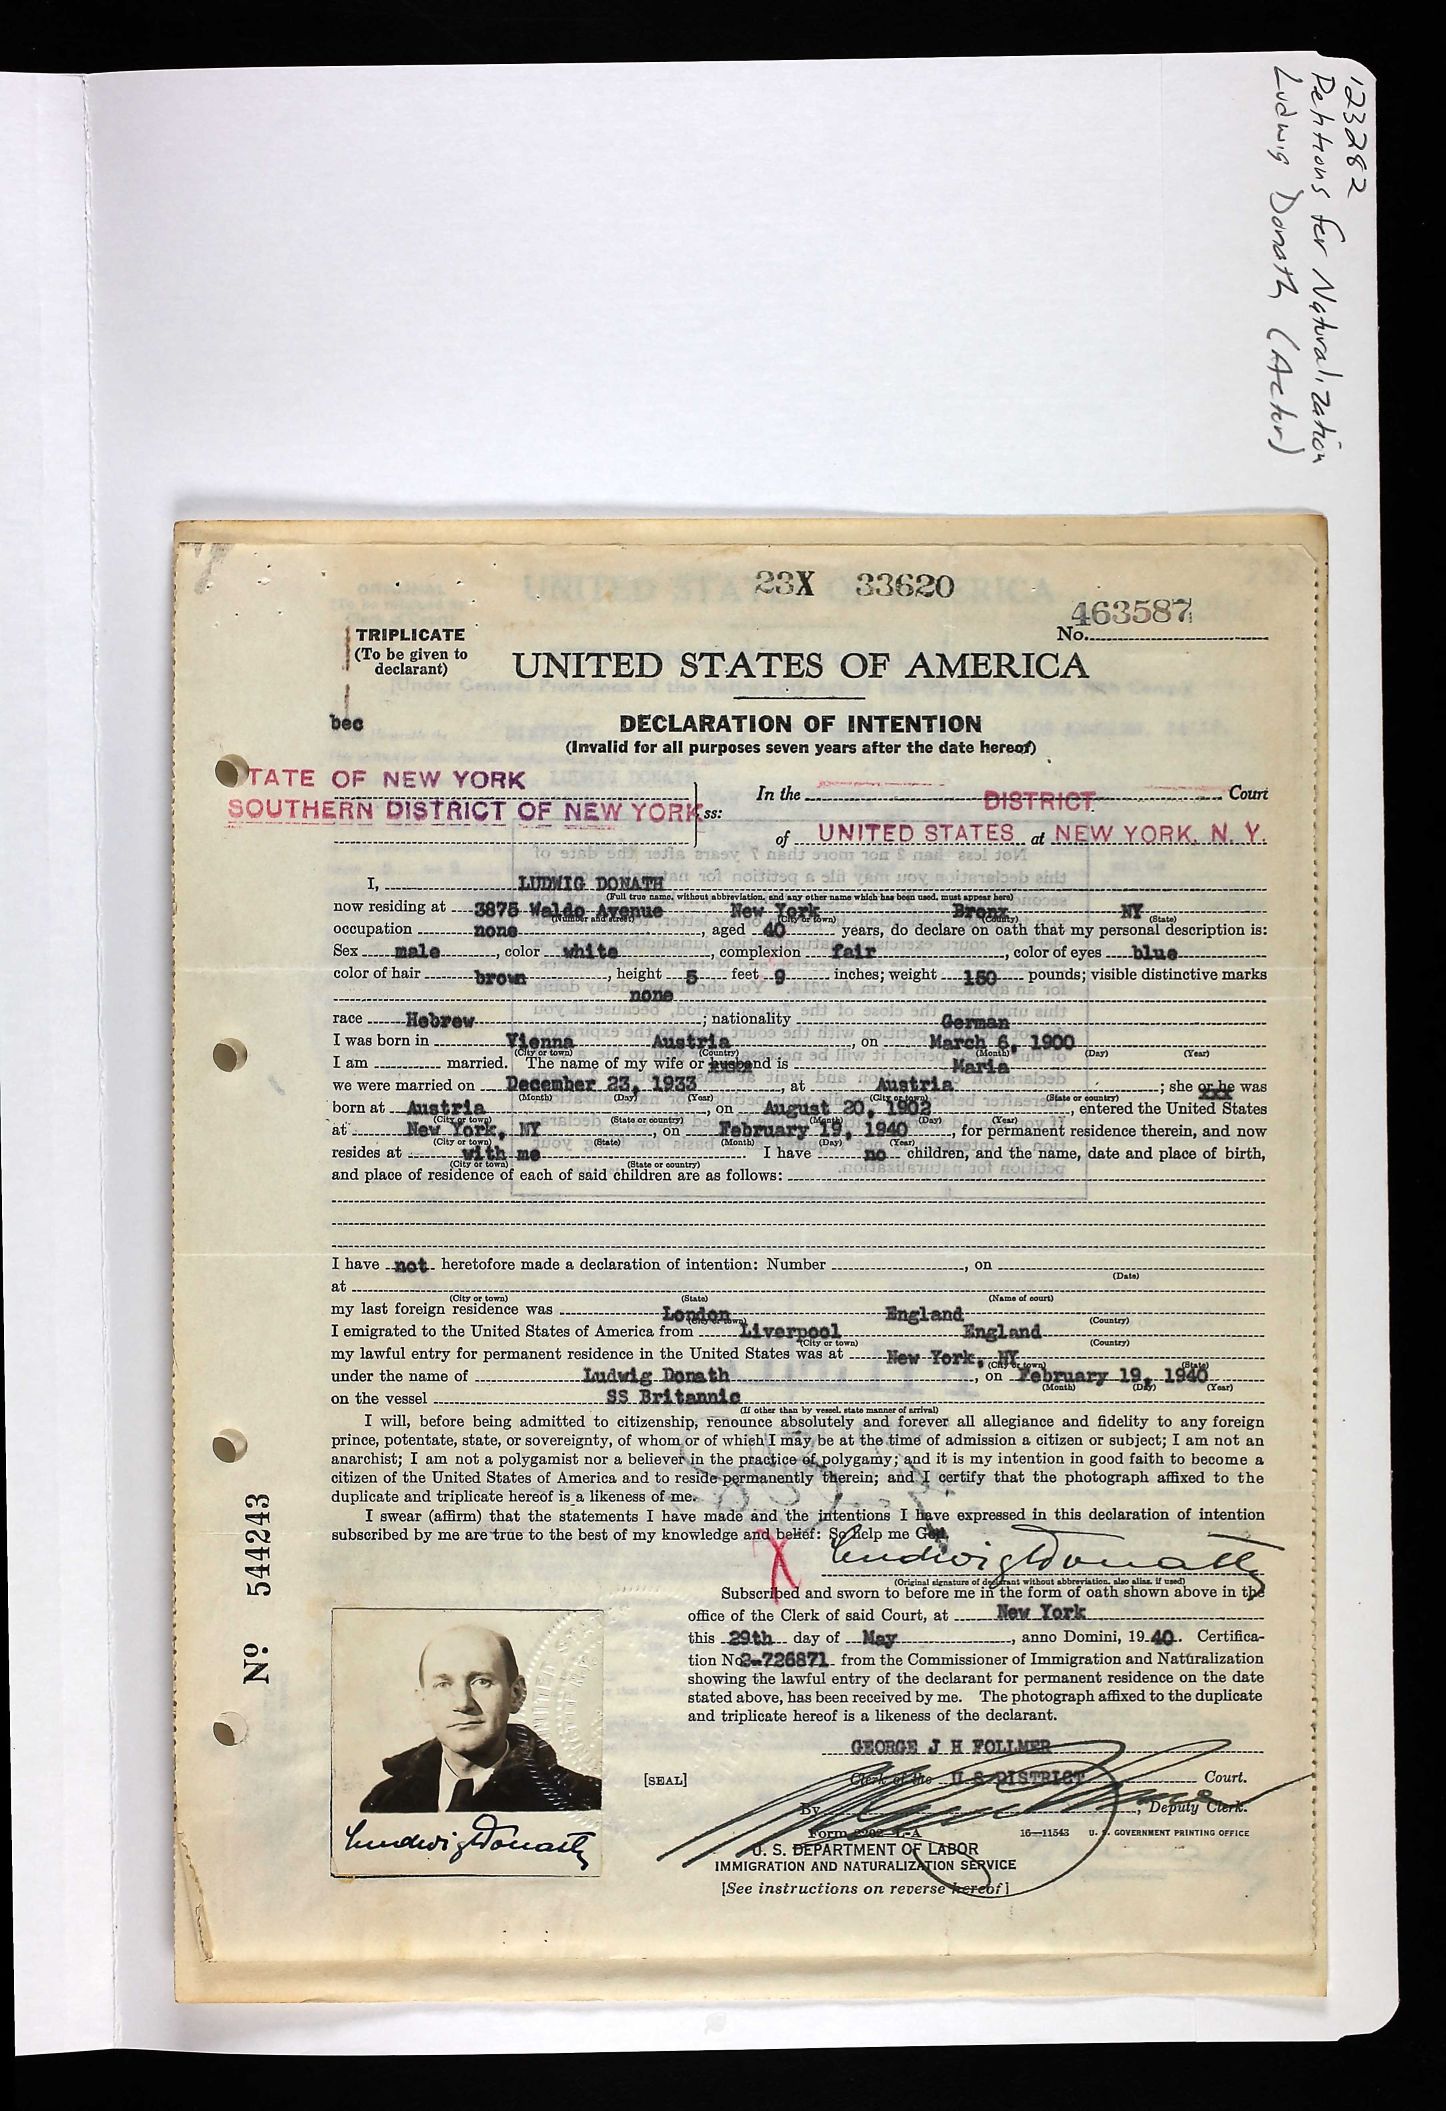 123282
Petitions for Naturalization
Ludwig Donath (Actor)
23X 33620
No. 463587
TRIPLICATE
(To be given to
declarant)
UNITED STATES OF AMERICA
bec
DECLARATION OF INTENTION
(Invalid for all purposes seven years after the date hereof)
TATE OF NEW YORK
SOUTHERN DISTRICT OF NEW YORK
ss:
In the DISTRICT Court
of UNITED STATES at NEW YORK, N. Y.
I, LUDWIG DONATH
(Full true name, without abbreviation, and any other name which has been used, must appear here)
now residing at 3875 Waldo Avenue New York Bronx NY
(Number and street) (City or town) (County) (State)
occupation none, aged 40 years, do declare on oath that my personal description is:
Sex male, color white, complexion fair, color of eyes blue
color of hair brown, height 5 feet 9 inches; weight 150 pounds; visible distinctive marks
none
race Hebrew; nationality German
I was born in Vienna Austria, on March 6, 1900
(City or town) (Country) (Month) (Day) (Year)
I am married. The name of my wife or husband is Maria
we were married on December 23, 1933, at Austria; she or he was
(Month) (Day) (Year) (City or town) (State or country)
born at Austria, on August 20, 1902, entered the United States
(City or town) (State or country) (Month) (Day) (Year)
at New York, NY, on February 19, 1940, for permanent residence therein, and now
(City or town) (State) (Month) (Day) (Year)
resides at with me I have no children, and the name, date and place of birth,
(City or town) (State or country)
and place of residence of each of said children are as follows:
I have not heretofore made a declaration of intention: Number, on
(Date)
at
(City or town) (State) (Name of court)
my last foreign residence was London England
(City or town) (Country)
I emigrated to the United States of America from Liverpool England
(City or town) (Country)
my lawful entry for permanent residence in the United States was at New York, NY
(City or town) (State)
under the name of Ludwig Donath, on February 19, 1940
(Month) (Day) (Year)
on the vessel SS Britannic
(If other than by vessel, state manner of arrival)
I will, before being admitted to citizenship, renounce absolutely and forever all allegiance and fidelity to any foreign
prince, potentate, state, or sovereignty, of whom or of which I may be at the time of admission a citizen or subject; I am not an
anarchist; I am not a polygamist nor a believer in the practice of polygamy; and it is my intention in good faith to become a
citizen of the United States of America and to reside permanently therein; and I certify that the photograph affixed to the
duplicate and triplicate hereof is a likeness of me.
I swear (affirm) that the statements I have made and the intentions I have expressed in this declaration of intention
subscribed by me are true to the best of my knowledge and belief: So help me God.
X
Ludwig Donath
(Original signature of declarant without abbreviation, also alias, if used)
Subscribed and sworn to before me in the form of oath shown above in the
office of the Clerk of said Court, at New York
this 29th day of May, anno Domini, 1940. Certifica-
tion No 2-726871 from the Commissioner of Immigration and Naturalization
showing the lawful entry of the declarant for permanent residence on the date
stated above, has been received by me. The photograph affixed to the duplicate
and triplicate hereof is a likeness of the declarant.
GEORGE J H FOLLMER
[SEAL]
Clerk of the U S DISTRICT Court.
By, Deputy Clerk.
Form 2202-L-A
16—11543 U. S. GOVERNMENT PRINTING OFFICE
U. S. DEPARTMENT OF LABOR
IMMIGRATION AND NATURALIZATION SERVICE
[See instructions on reverse hereof]
No 544243
Ludwig Donath